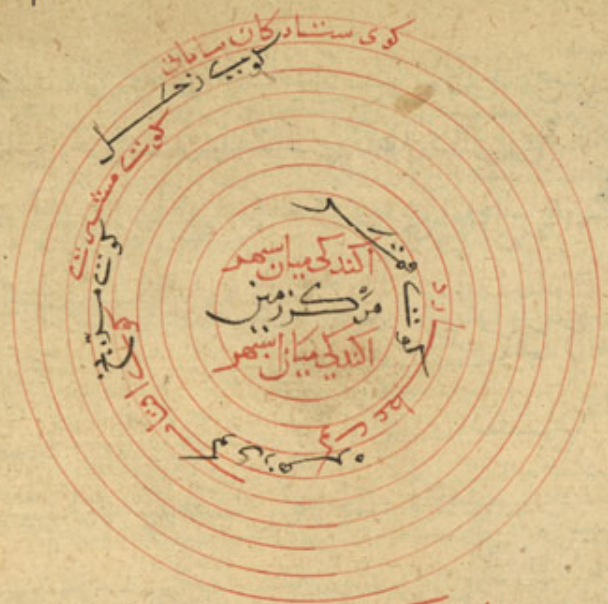 کوی ستارکان بیابانی
کوی زحل
کوی مشتری
کوی مریخ
کوی افتاب
کوی زهره
کوی عطارد
کوی قمر
اکندکی میان سپهر
مرکز زمین
اکندکی میان سپهر